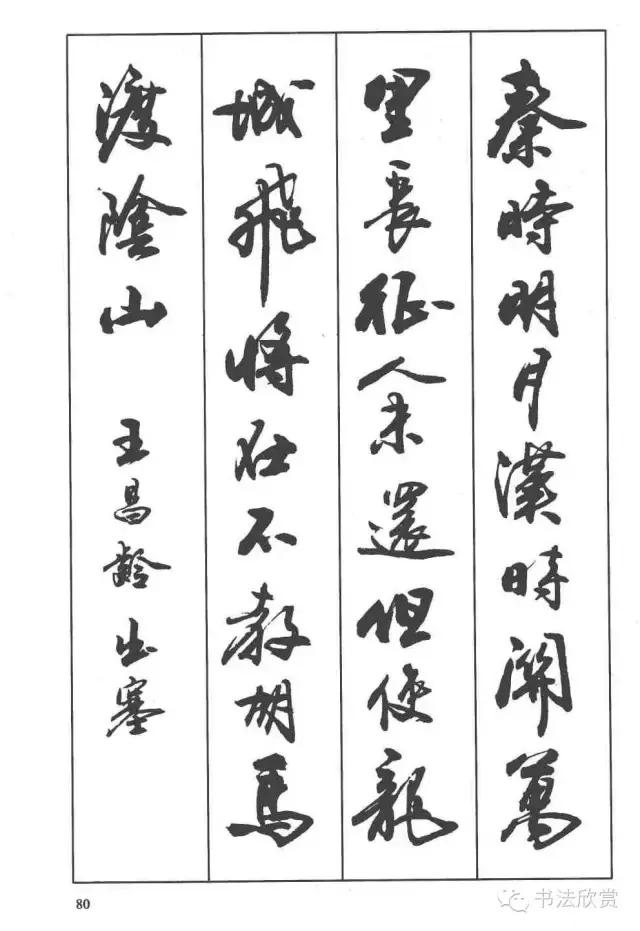 秦時明月漢時關萬
里長征人未還但使龍
城飛將在不教胡馬
渡陰山 王昌齡出塞
80
书法欣赏